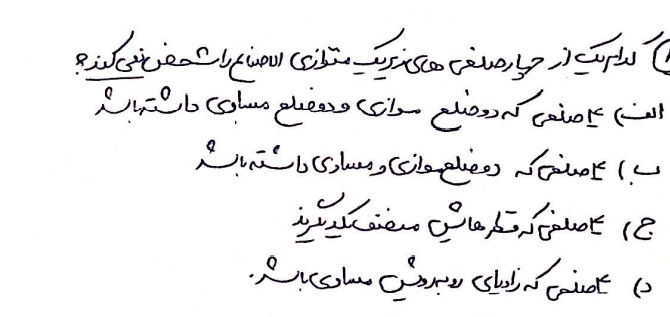 ۱) کدام یک از چهارضلعی های زیر یک متوازی الاضلاع را مشخص نمی کند؟
الف) ۴ ضلعی که دو ضلع موازی و دو ضلع مساوی داشته باشد
ب) ۴ ضلعی که دو ضلع موازی و مساوی داشته باشد
ج) ۴ ضلعی که قطرهایش منصف یکدیگرند
د) ۴ ضلعی که زوایای روبرویش مساوی باشد.